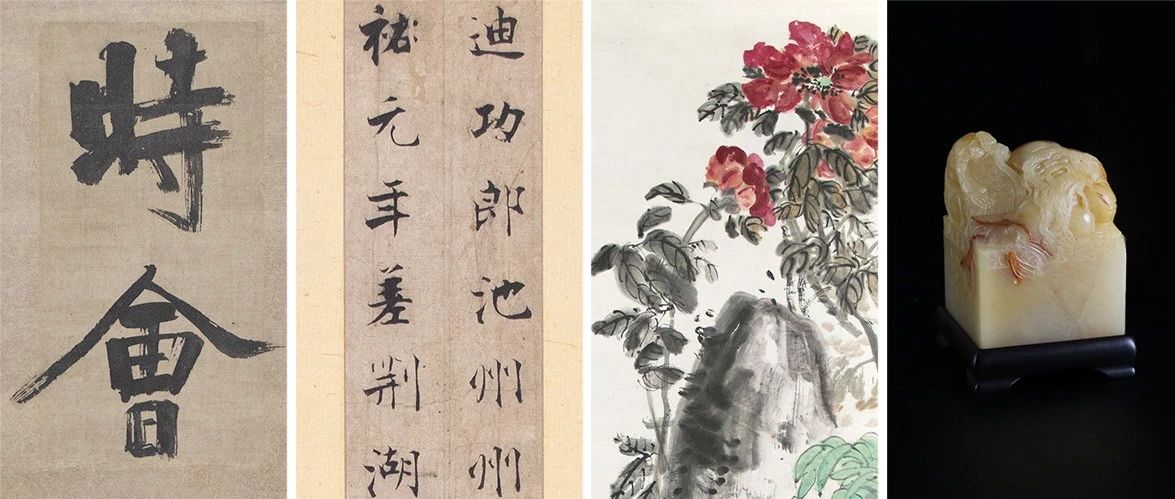 時會
迪功郎池州州
祐元年差荊湖